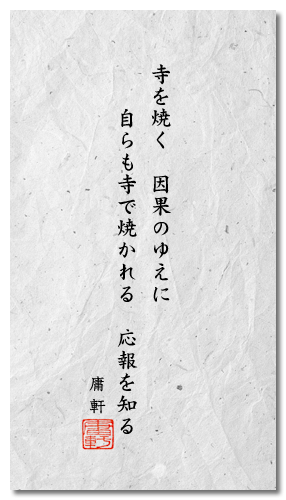 寺を焼く　因果のゆえに
自らも寺で焼かれる　応報を知る
庸軒
庸軒